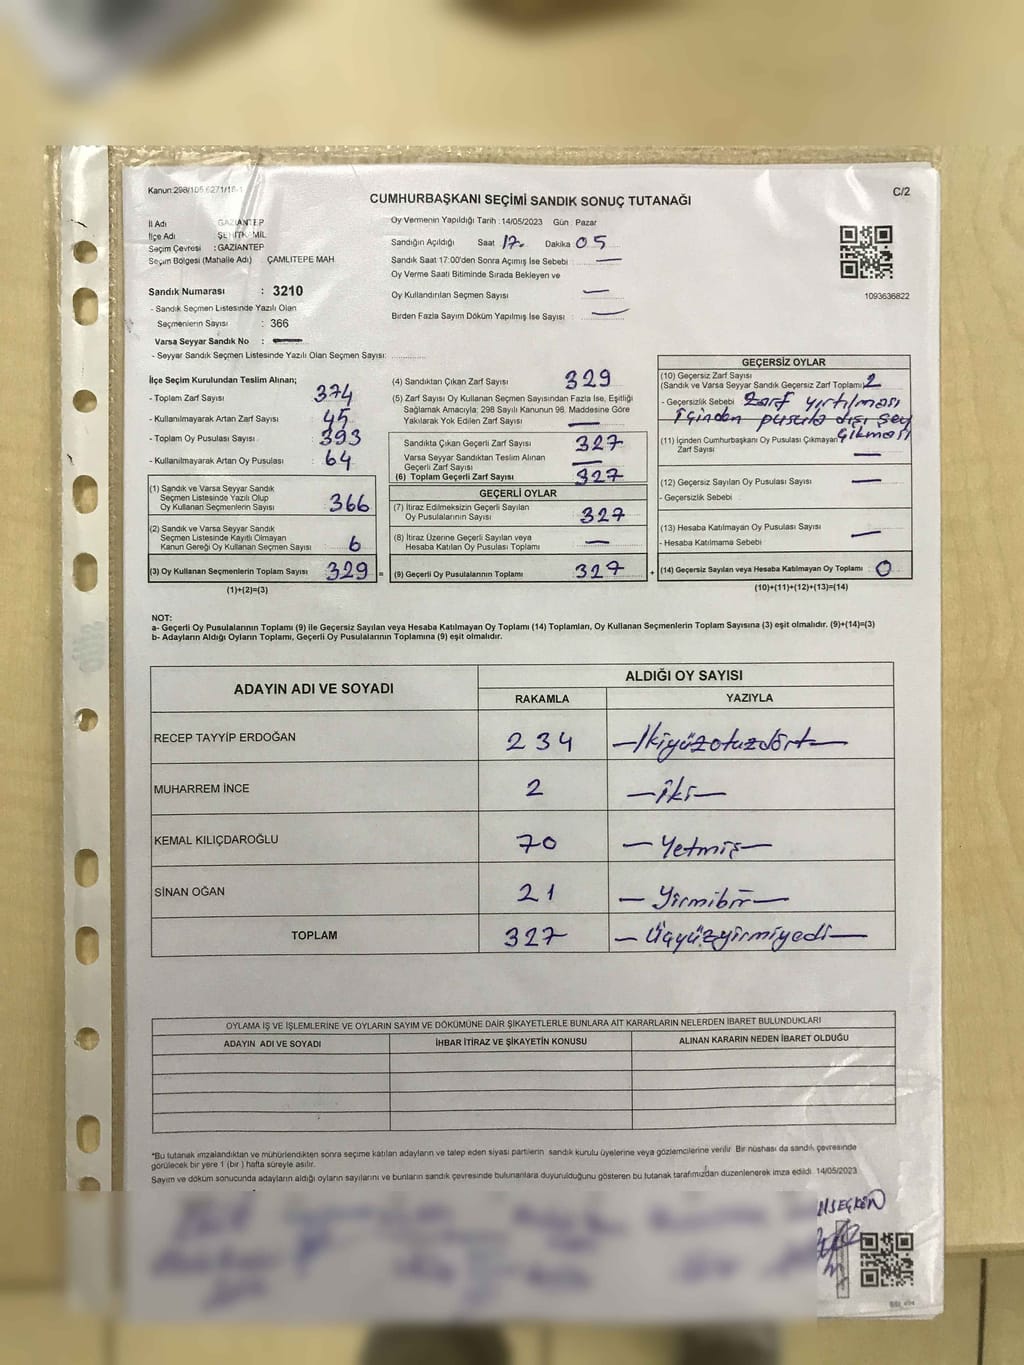 Kanun:298/105,6271/18-1
C/2
CUMHURBAŞKANI SEÇİMİ SANDIK SONUÇ TUTANAĞI
İl Adı GAZİANTEP
İlçe Adı ŞEHİTKAMİL
Seçim Çevresi : GAZİANTEP
Seçim Bölgesi (Mahalle Adı) ÇAMLITEPE MAH
Sandık Numarası : 3210
- Sandık Seçmen Listesinde Yazılı Olan
Seçmenlerin Sayısı : 366
Varsa Seyyar Sandık No :
- Seyyar Sandık Seçmen Listesinde Yazılı Olan Seçmen Sayısı:
Oy Vermenin Yapıldığı Tarih : 14/05/2023 Gün : Pazar
Sandığın Açıldığı Saat 17 Dakika 05
Sandık Saat 17:00'den Sonra Açımış İse Sebebi :
Oy Verme Saati Bitiminde Sırada Bekleyen ve
Oy Kullandırılan Seçmen Sayısı
Birden Fazla Sayım Döküm Yapılmış İse Sayısı :
1093636822
İlçe Seçim Kurulundan Teslim Alınan;
- Toplam Zarf Sayısı : 374
- Kullanılmayarak Artan Zarf Sayısı : 45
- Toplam Oy Pusulası Sayısı : 393
- Kullanılmayarak Artan Oy Pusulası : 64
(1) Sandık ve Varsa Seyyar Sandık
Seçmen Listesinde Yazılı Olup
Oy Kullanan Seçmenlerin Sayısı 366
(2) Sandık ve Varsa Seyyar Sandık
Seçmen Listesinde Kayıtlı Olmayan
Kanun Gereği Oy Kullanan Seçmen Sayısı 6
(3) Oy Kullanan Seçmenlerin Toplam Sayısı 329 =
(1)+(2)=(3)
(4) Sandıktan Çıkan Zarf Sayısı 329
(5) Zarf Sayısı Oy Kullanan Seçmen Sayısından Fazla İse, Eşitliği
Sağlamak Amacıyla; 298 Sayılı Kanunun 98. Maddesine Göre
Yakılarak Yok Edilen Zarf Sayısı
Sandıkta Çıkan Geçerli Zarf Sayısı 327
Varsa Seyyar Sandıktan Teslim Alınan
Geçerli Zarf Sayısı
(6) Toplam Geçerli Zarf Sayısı 327
GEÇERLİ OYLAR
(7) İtiraz Edilmeksizin Geçerli Sayılan
Oy Pusulalarının Sayısı 327
(8) İtiraz Üzerine Geçerli Sayılan veya
Hesaba Katılan Oy Pusulası Toplamı
(9) Geçerli Oy Pusulalarının Toplamı 327 +
GEÇERSİZ OYLAR
(10) Geçersiz Zarf Sayısı
(Sandık ve Varsa Seyyar Sandık Geçersiz Zarf Toplamı) 2
- Geçersizlik Sebebi Zarf yırtılması
içinden pusula dışı şey
çıkması
(11) İçinden Cumhurbaşkanı Oy Pusulası Çıkmayan
Zarf Sayısı
(12) Geçersiz Sayılan Oy Pusulası Sayısı
- Geçersizlik Sebebi
(13) Hesaba Katılmayan Oy Pusulası Sayısı
- Hesaba Katılmama Sebebi
(14) Geçersiz Sayılan veya Hesaba Katılmayan Oy Toplamı : 0
(10)+(11)+(12)+(13)=(14)
NOT:
a- Geçerli Oy Pusulalarının Toplamı (9) ile Geçersiz Sayılan veya Hesaba Katılmayan Oy Toplamı (14) Toplamları, Oy Kullanan Seçmenlerin Toplam Sayısına (3) eşit olmalıdır. (9)+(14)=(3)
b- Adayların Aldığı Oyların Toplamı, Geçerli Oy Pusulalarının Toplamına (9) eşit olmalıdır.
ADAYIN ADI VE SOYADI ALDIĞI OY SAYISI
RAKAMLA YAZIYLA
RECEP TAYYİP ERDOĞAN 234 İkiyüzotuzdört
MUHARREM İNCE 2 iki
KEMAL KILIÇDAROĞLU 70 Yetmiş
SİNAN OĞAN 21 Yirmibir
TOPLAM 327 Üçyüzyirmiyedi
OYLAMA İŞ VE İŞLEMLERİNE VE OYLARIN SAYIM VE DÖKÜMÜNE DAİR ŞİKAYETLERLE BUNLARA AİT KARARLARIN NELERDEN İBARET BULUNDUKLARI
ADAYIN ADI VE SOYADI İHBAR İTİRAZ VE ŞİKAYETİN KONUSU ALINAN KARARIN NEDEN İBARET OLDUĞU
*Bu tutanak imzalandıktan ve mühürlendikten sonra seçime katılan adayların ve talep eden siyasi partilerin sandık kurulu üyelerine veya gözlemcilerine verilir. Bir nüshası da sandık çevresinde
görülecek bir yere 1 (bir) hafta süreyle asılır.
Sayım ve döküm sonucunda adayların aldığı oyların sayılarını ve bunların sandık çevresinde bulunanlara duyurulduğunu gösteren bu tutanak tarafımızdan düzenlenerek imza edildi. 14/05/2023